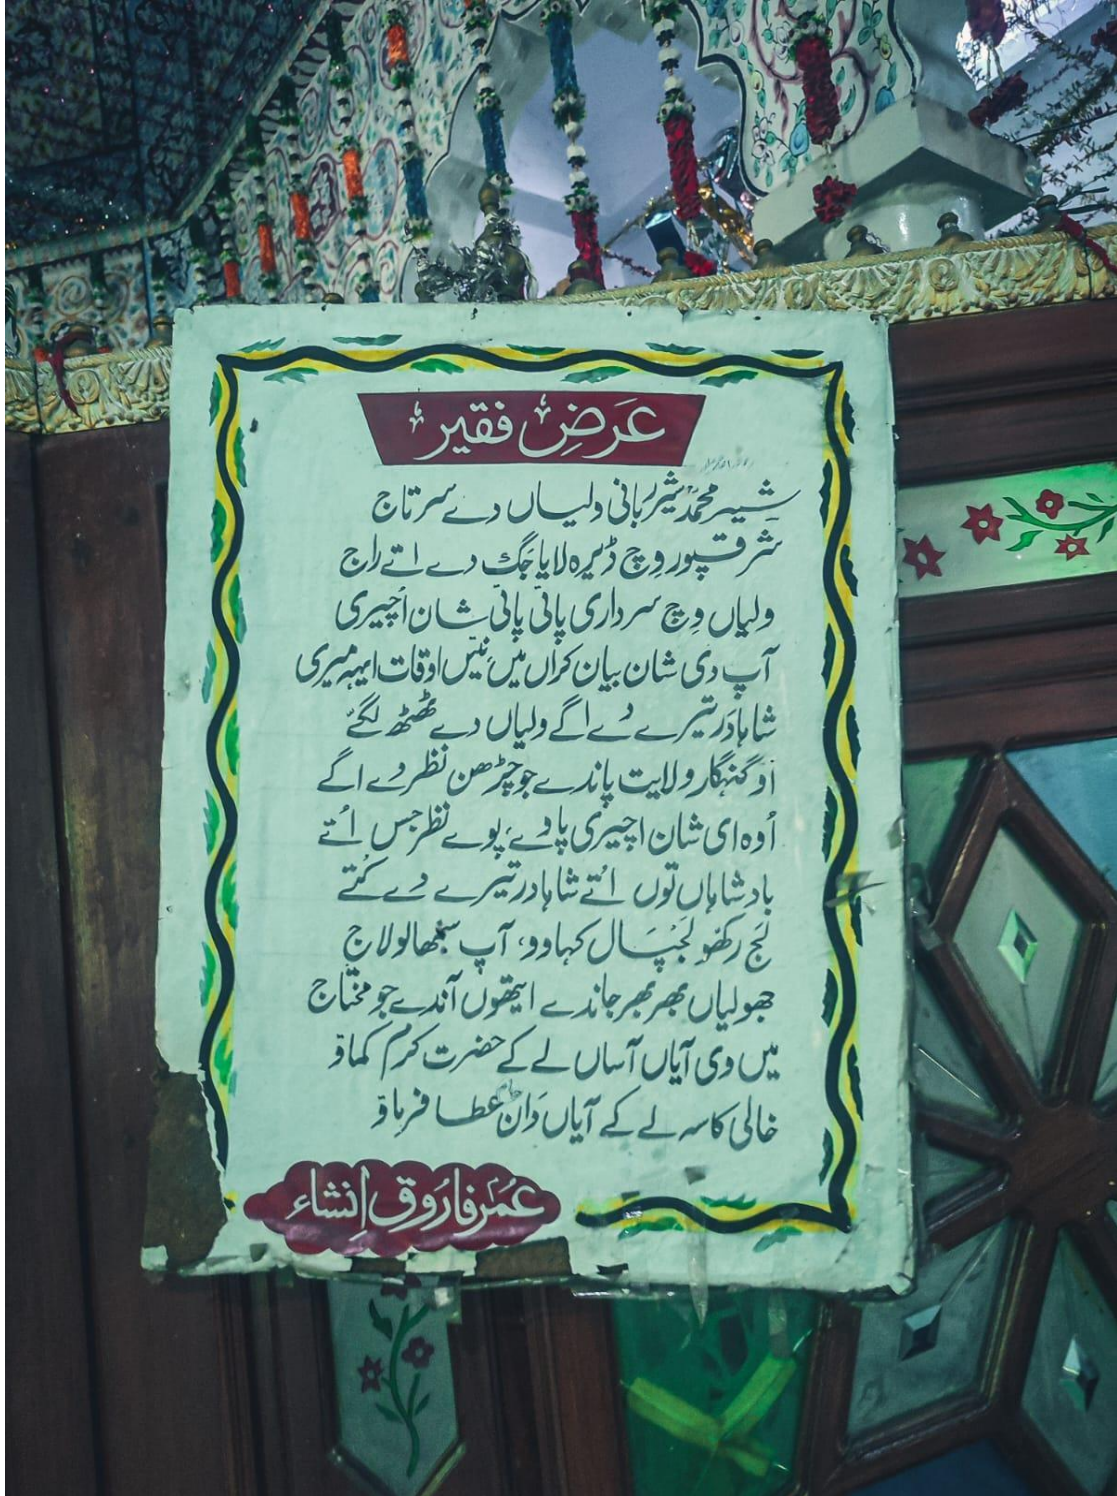 عَرضِ فقیر
شیر محمدؒ شیر ربانی ولیاں دے سرتاج
شرقپور وِچ ڈیرہ لایا جگ دے اتے راج
ولیاں وِچ سرداری پائی پائی شان اُچیری
آپ دی شان بیان کراں میں نئیں اوقات ایہہ میری
شاہا دَر تیرے دے اگے ولیاں دے ٹھٹھ لگے
اوگنہگار ولایت پاندے جو چڑھن نظر دے اگے
اُوہ ای شان اچیری پاوے پوے نظر جس اُتے
بادشاہاں توں اُتے شاہا در تیرے دے کُتے
لَج رکھو لَجپَال کہاوو، آپ سنبھالو لاج
جھولیاں بھر بھر جاندے ایتھوں آندے جو محتاج
میں وی آیاں آساں لے کے حضرت کرم کماؤ
خالی کاسہ لے کے آیاں دَان عطا فرماؤ
عُمَر فارُوق اِنشاء